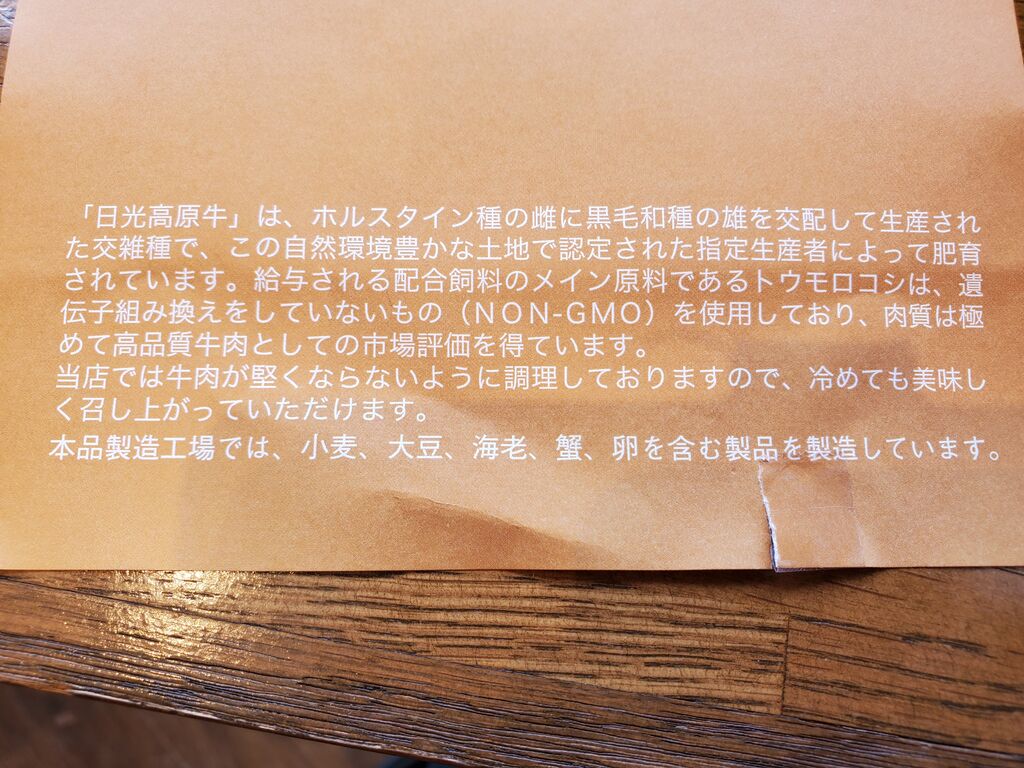 「日光高原牛」は、ホルスタイン種の雌に黒毛和種の雄を交配して生産され
た交雑種で、この自然環境豊かな土地で認定された指定生産者によって肥育
されています。給与される配合飼料のメイン原料であるトウモロコシは、遺
伝子組み換えをしていないもの（NON-GMO）を使用しており、肉質は極
めて高品質牛肉としての市場評価を得ています。
当店では牛肉が堅くならないように調理しておりますので、冷めても美味し
く召し上がっていただけます。
本品製造工場では、小麦、大豆、海老、蟹、卵を含む製品を製造しています。